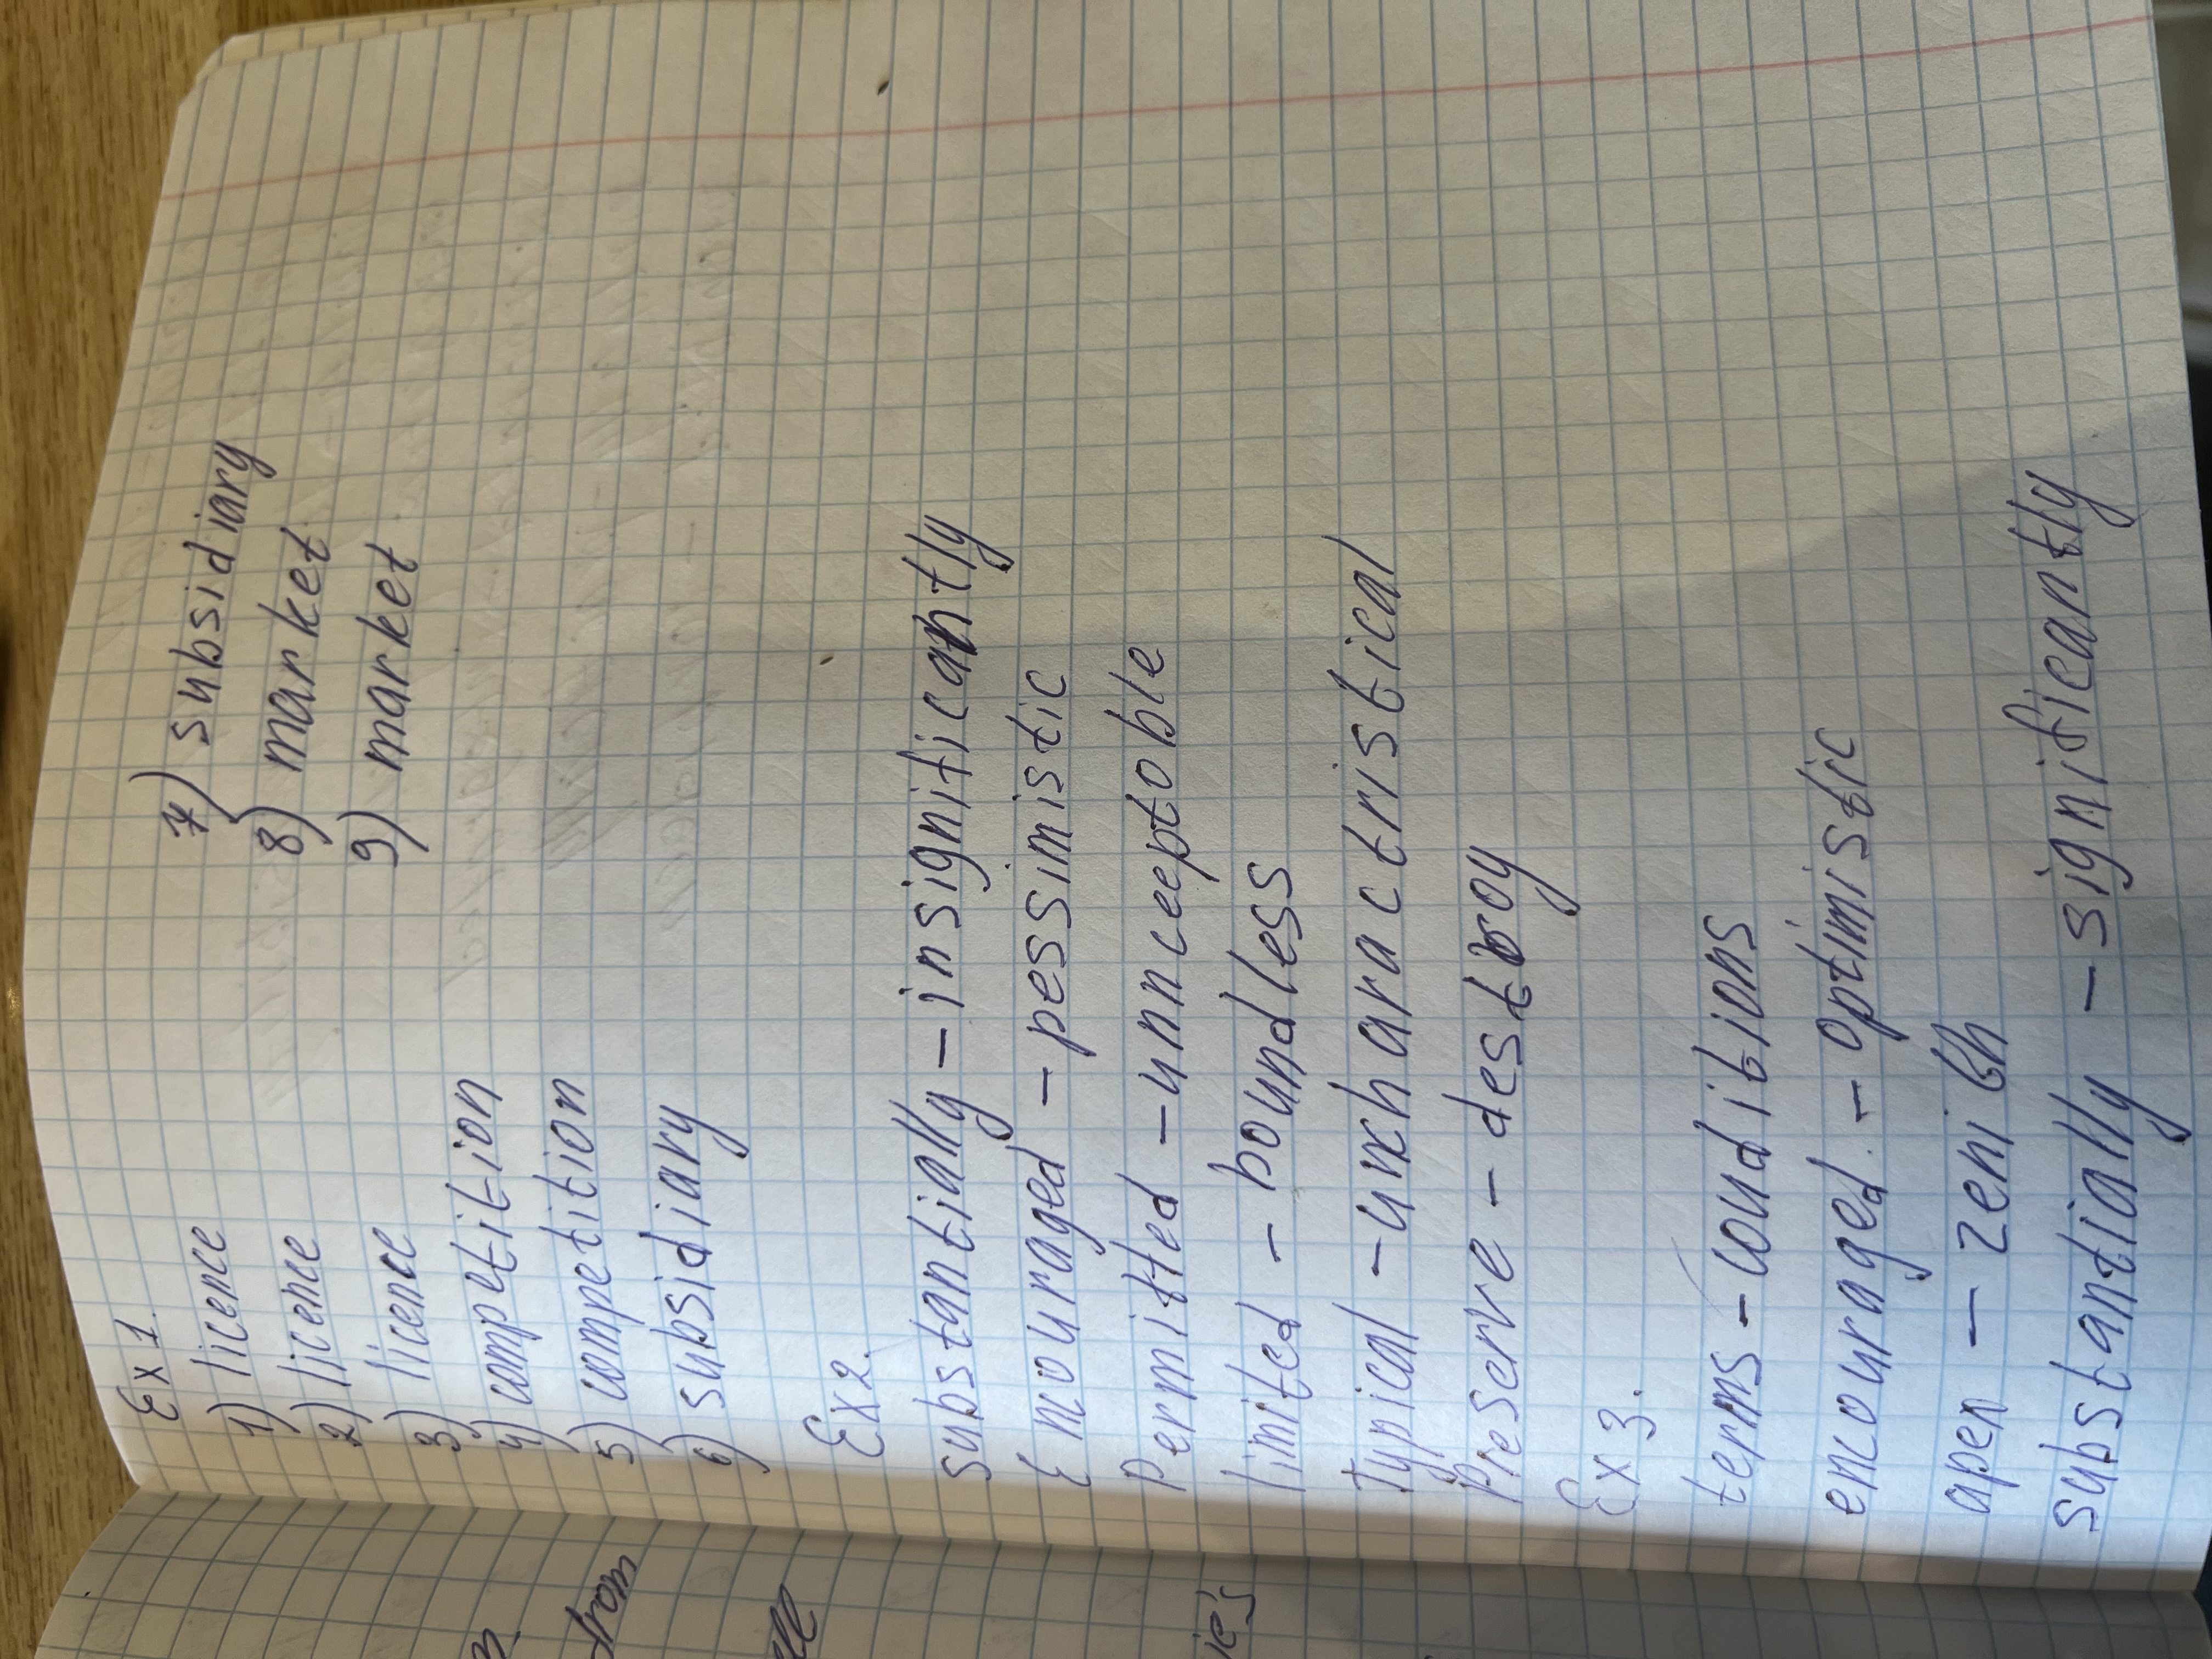 Ex 1.
1) licence
2) licence
3) licence
4) competition
5) competition
6) subsidiary
7) subsidiary
8) market
9) market
Ex 2.
substantially - insignificantly
Encouraged - pessimistic
Permitted - unnceeptoble
limited - boundless
Typical - unxharactristical
Preserve - destroy
Ex 3.
terms - conditions
encouraged - optimistic
apex - zenith
substantially - significeantly
from
ie's